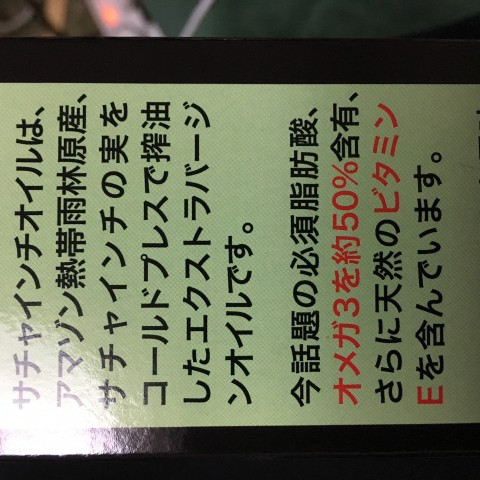 サチャインチオイルは、
アマゾン熱帯雨林原産、
サチャインチの実を
コールドプレスで搾油
したエクストラバージ
ンオイルです。
今話題の必須脂肪酸、
オメガ3を約50%含有、
さらに天然のビタミン
Eを含んでいます。